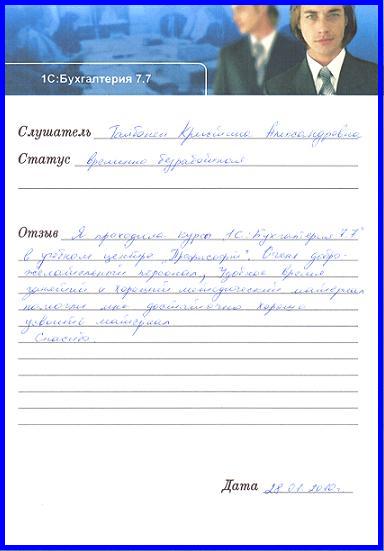 1С:Бухгалтерия 7.7
Слушатель Кристина Александровна
Статус временно безработная
Отзыв Я проходила курсы 1С:Бухгалтерия 7.7"
в учебном центре "Профисофт". Очень добро-
желательный персонал, Удобное время
занятий и хороший методический материал
помогли мне достаточно хорошо
усвоить материал
Спасибо.
Дата 28.01.2010г.